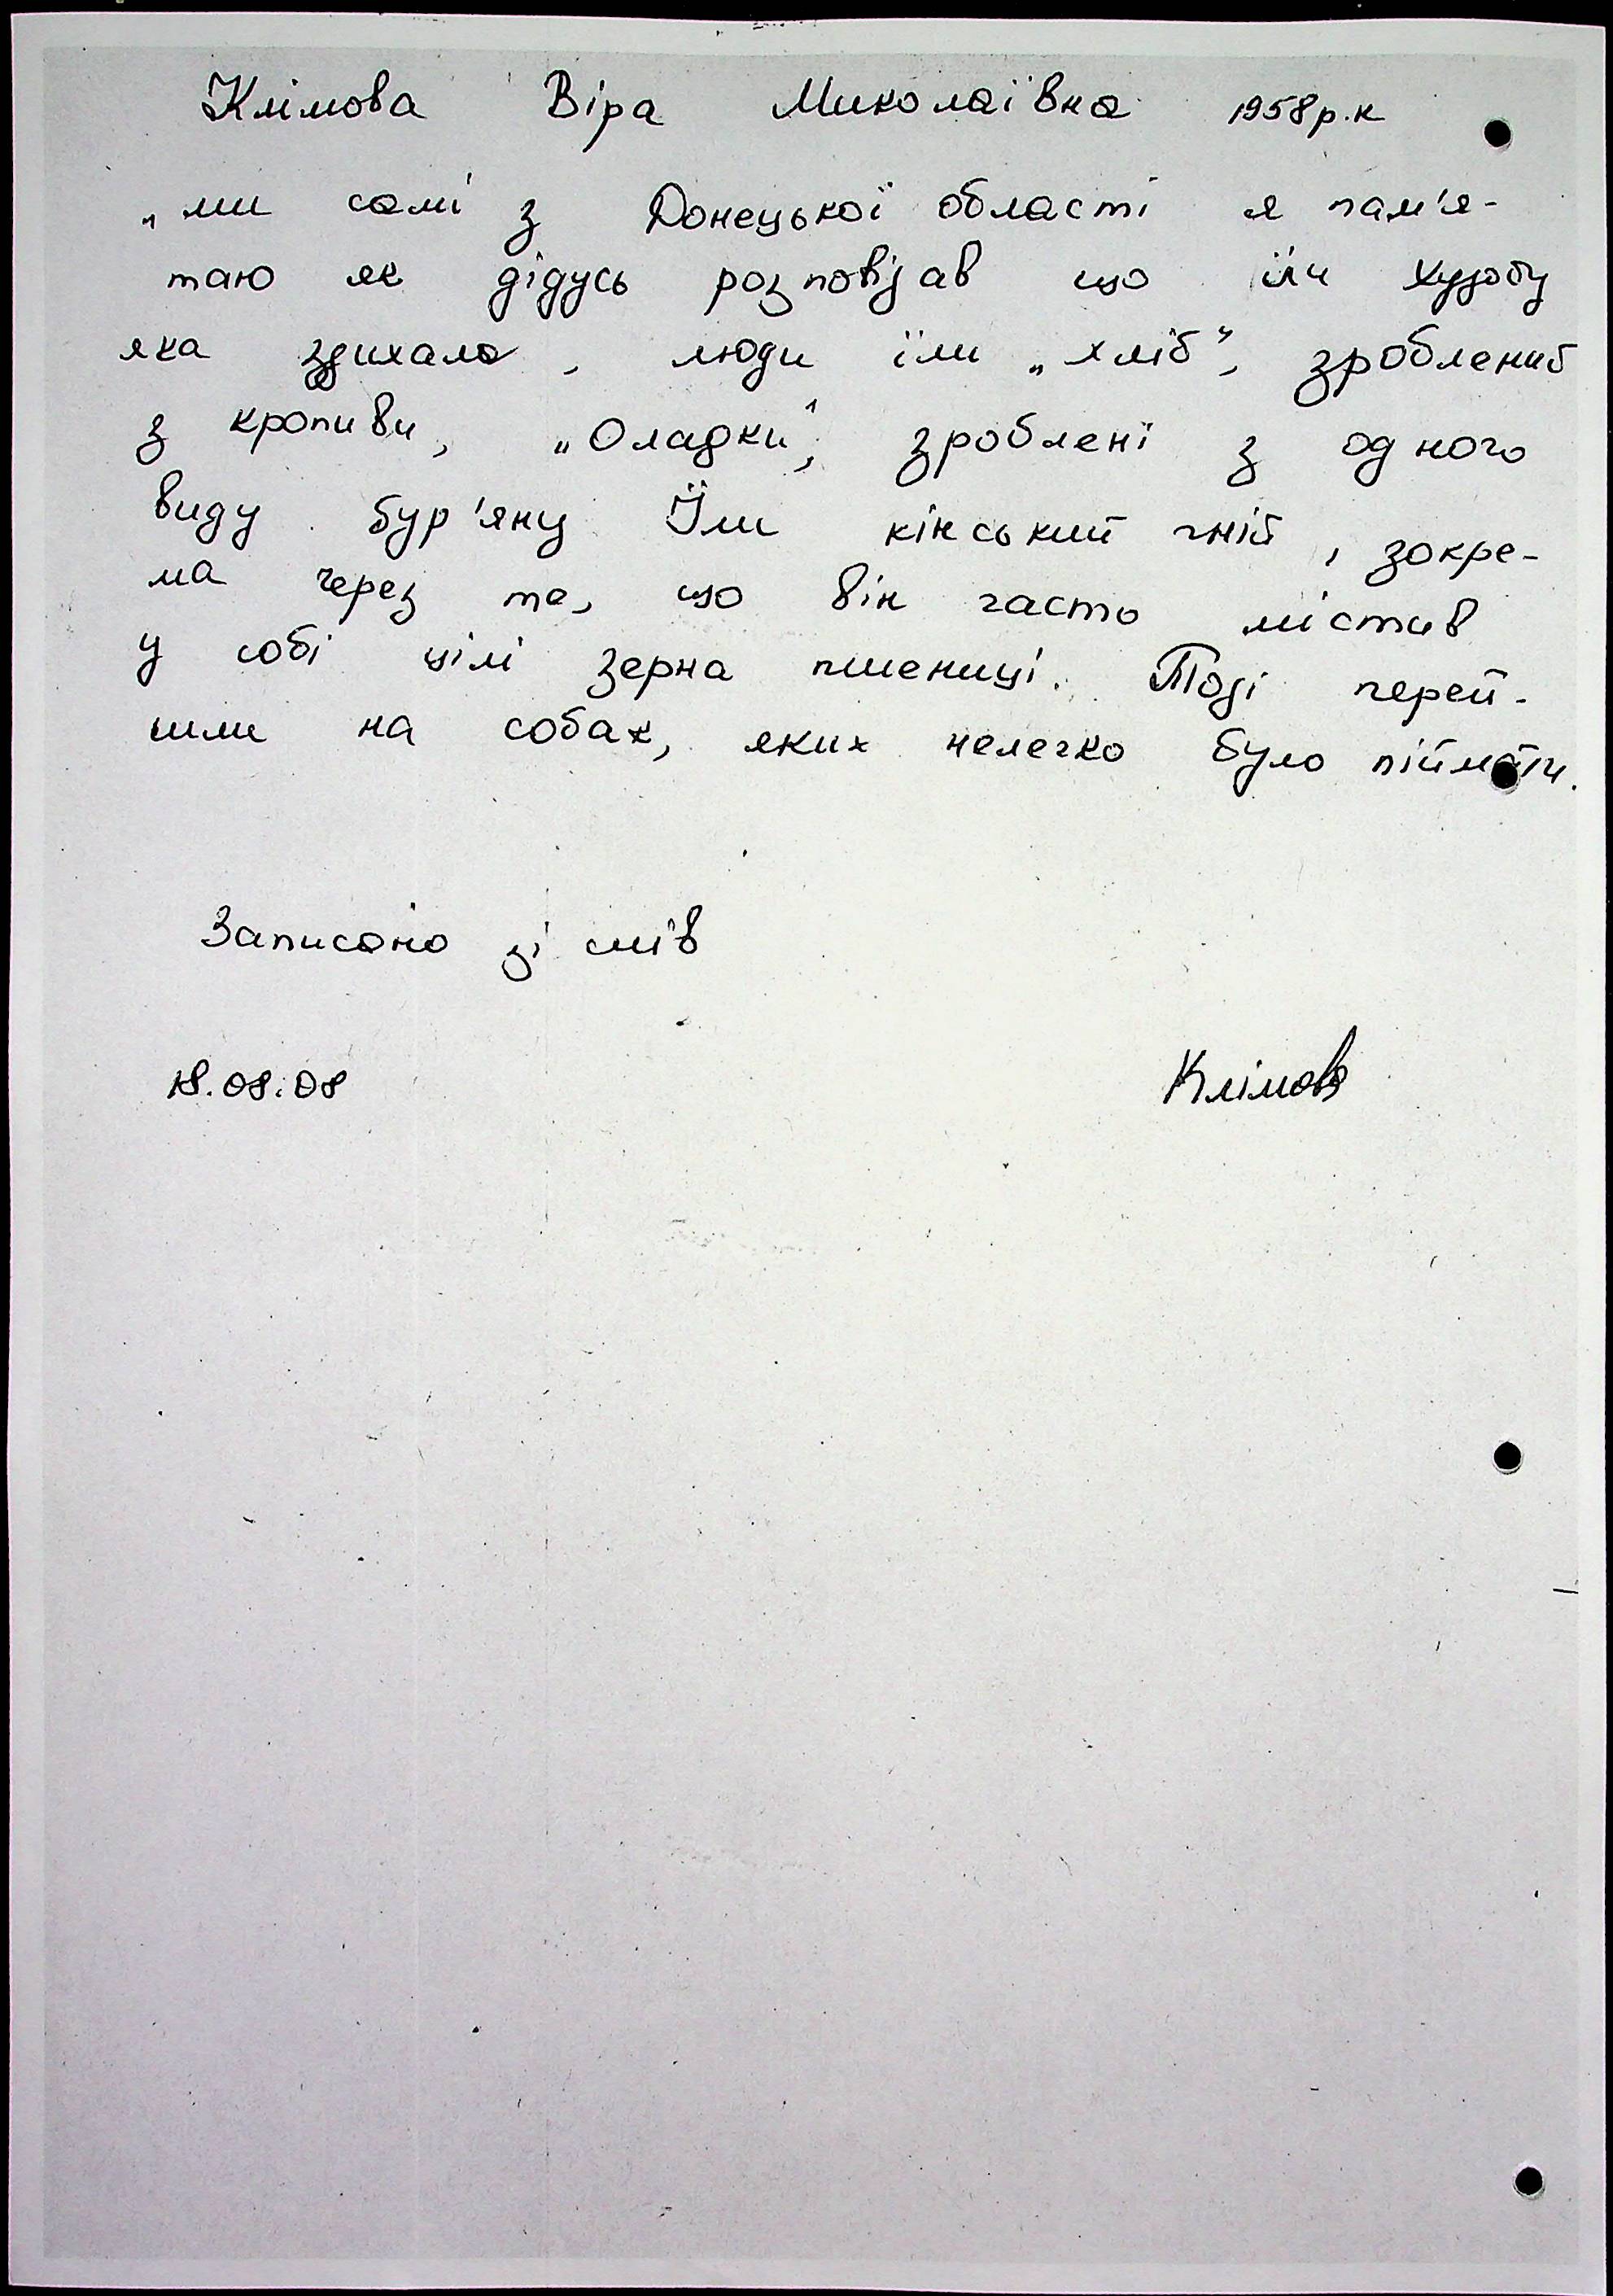 Клімова Віра Миколаївна 1958р.н
„ми самі з Донецької області я пам'я-
таю як дідусь розповідав що їли худобу
яка здихала, люди їли „хліб", зроблений
з кропиви, „Оладки", зроблені з одного
виду бур'яну Їли кінський гній, зокре-
ма через те, що він часто містив
у собі цілі зерна пшениці. Тоді перей-
шли на собак, яких нелегко було піймати.
Записано зі слів
18.08.08 Клімова